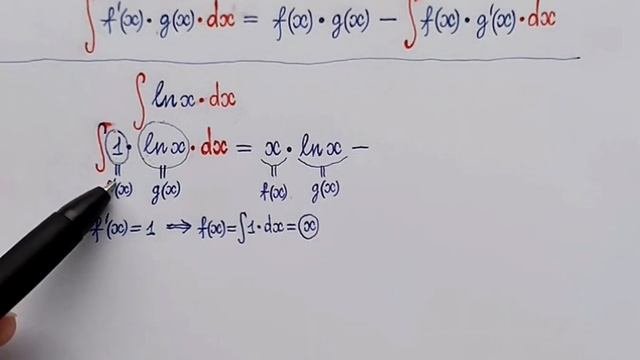 ∫f'(x)·g(x)·dx = f(x)·g(x) − ∫f(x)·g'(x)·dx
∫lnx·dx
∫1·lnx·dx = x·lnx −
'(x) g(x) f(x) g(x)
f'(x) = 1 ⟹ f(x) = ∫1·dx = x